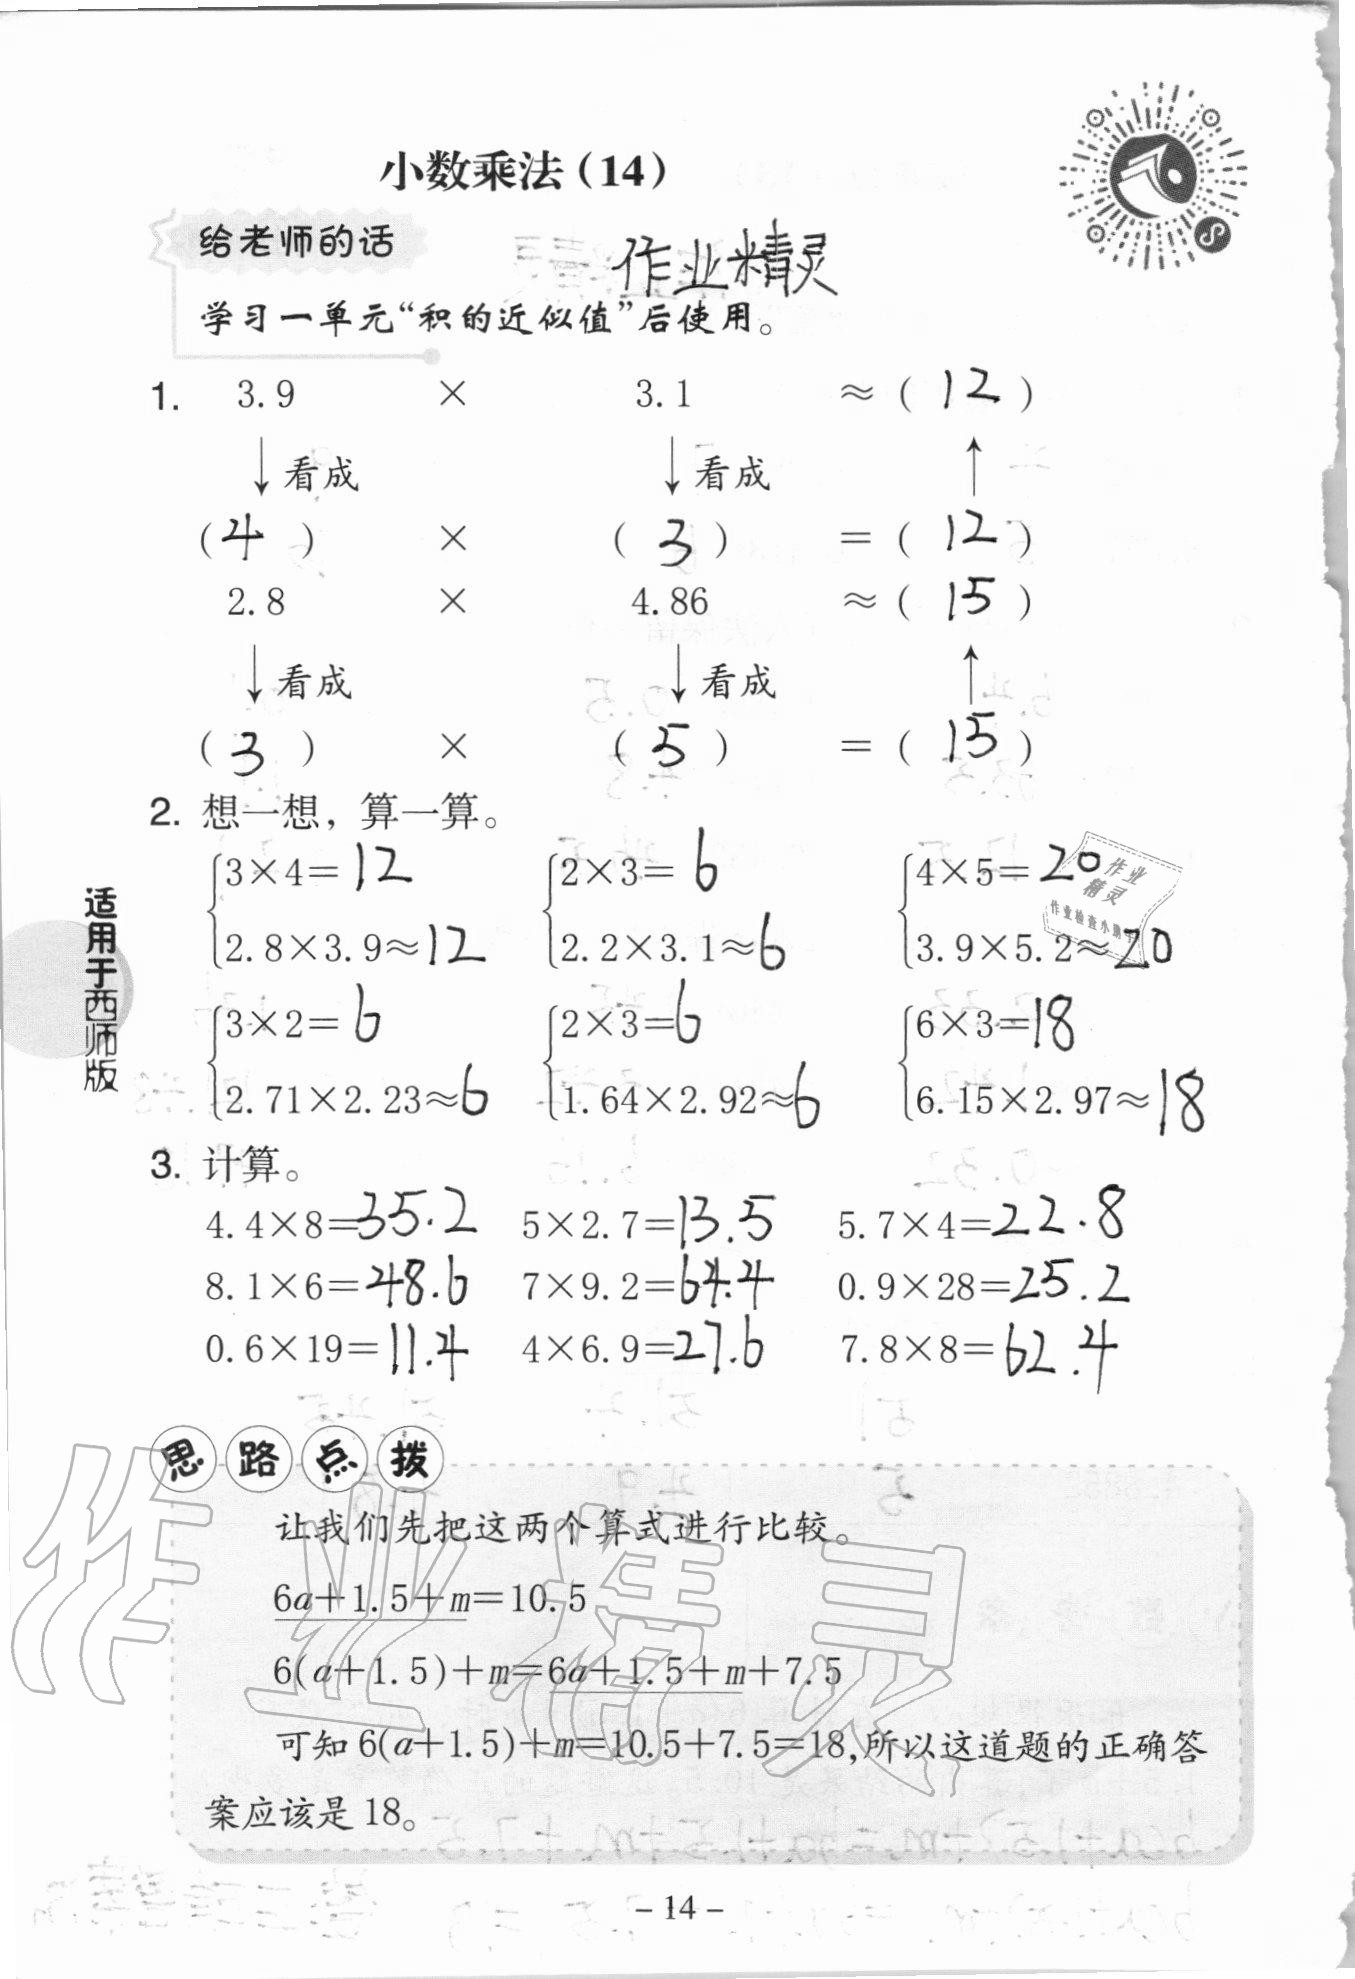 小数乘法(14)
给老师的话
作业精灵
学习一单元“积的近似值”后使用。
1. 3.9 × 3.1 ≈ ( 12 )
看成 看成
( 4 ) × ( 3 ) = ( 12 )
2.8 × 4.86 ≈ ( 15 )
看成 看成
( 3 ) × ( 5 ) = ( 15 )
2. 想一想，算一算。
3×4=12 2×3=6 4×5=20
2.8×3.9≈12 2.2×3.1≈6 3.9×5.2≈20
作业
精灵
3×2=6 2×3=6 6×3=18
2.71×2.23≈6 1.64×2.92≈6 6.15×2.97≈18
适用于西师版
3. 计算。
4.4×8=35.2 5×2.7=13.5 5.7×4=22.8
8.1×6=48.6 7×9.2=64.4 0.9×28=25.2
0.6×19=11.4 4×6.9=27.6 7.8×8=62.4
思路点拨
让我们先把这两个算式进行比较。
6a+1.5+m=10.5
6(a+1.5)+m=6a+1.5+m+7.5
可知 6(a+1.5)+m=10.5+7.5=18,所以这道题的正确答
案应该是 18。
作业精灵
- 14 -